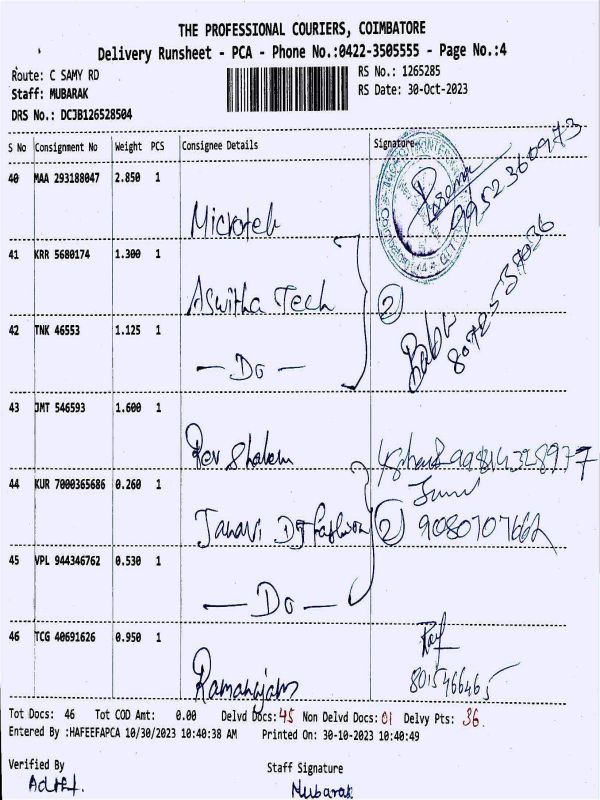 THE PROFESSIONAL COURIERS, COIMBATORE
Delivery Runsheet - PCA - Phone No.:0422-3505555 - Page No.:4
Route: C SAMY RD RS No.: 1265285
Staff: MUBARAK RS Date: 30-Oct-2023
DRS No.: DCJB126528504
S No Consignment No Weight PCS Consignee Details Signature
40 MAA 293188047 2.850 1
Microteh
9952360973
41 KRR 5680174 1.300 1
Aswitha Tech 2
42 TNK 46553 1.125 1
- Do - Babu
43 JMT 546593 1.600 1
Rev Shalem
44 KUR 7000365686 0.260 1
Janavi DJ fashion 2
45 VPL 944346762 0.530 1
- Do -
46 TCG 40691626 0.950 1
Ramanajam 8015466465
Tot Docs: 46 Tot COD Amt: 0.00 Delvd Docs: 45 Non Delvd Docs: 01 Delvy Pts: 36.
Entered By :HAFEEFAPCA 10/30/2023 10:40:38 AM Printed On: 30-10-2023 10:40:49
Verified By Staff Signature
Mubarak